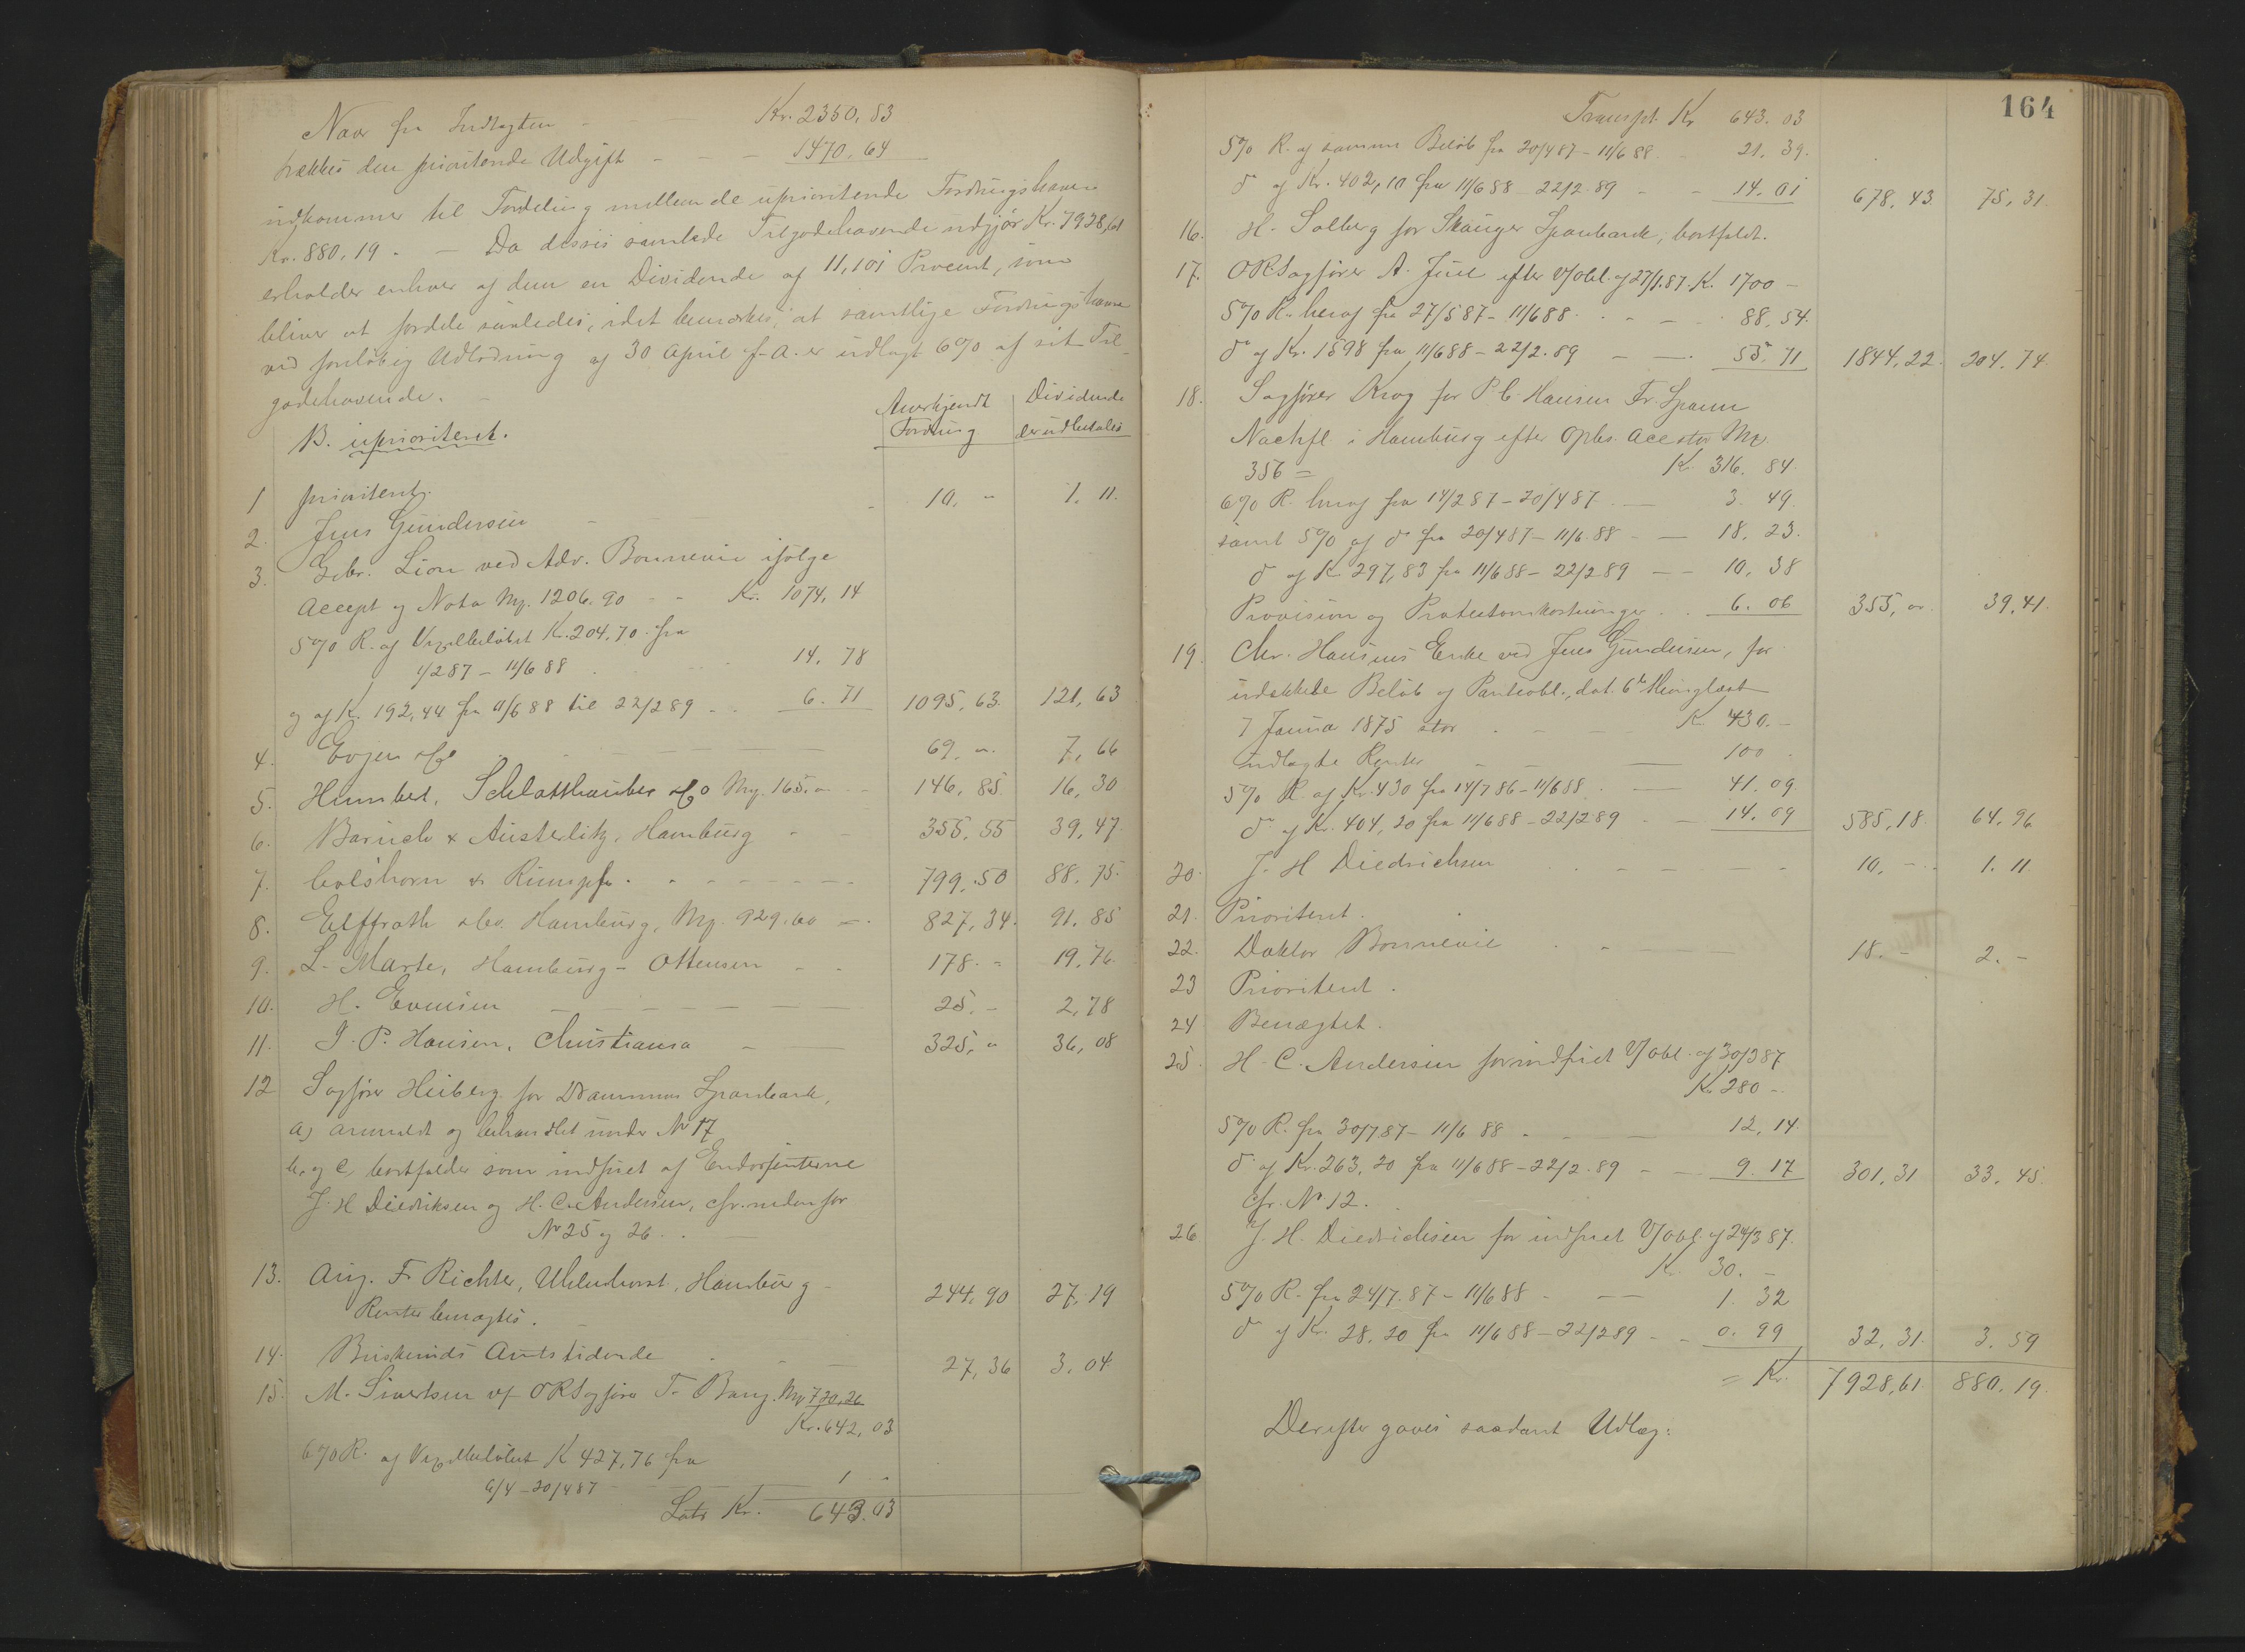 Naar fra Indtægten - - Kr. 2350,83
trækkes den prioriterede Udgift - - - 1470.64
udkommer til Fordeling mellem de uprioriterede Fordringshavere
Kr. 880,19. - Da disses samlede Tilgodehavende udgjør Kr. 7928,61
erholder enhver af dem en Dividende af 11,101 Procent, som
bliver at fordele saaledes, idet bemærkes, at samtlige Fordringshavere
ved foreløbig Udlodning af 30 April f. A. er udlagt 6% af sit Til-
godehavende. -
Anerkjendt Fordring | Dividende der udbetales
B. uprioriteret.
1 prioriteret.
2. Jens Gundersen - - 10. - 1. 11.
3. Gebr. Lion ved Adv. Bonnevie ifølge
Accept og Nota Mp. 1206.90 - - Kr. 1074.14
5% R. af Vexelbeløbet Kr. 204,70 fra
1/2 87 - 11/6 88 14. 78
og af K. 192,44 fra 11/6 88 til 22/2 89 - - 6. 71 1095,63. 121,63
4. Evjen & Co 69. " 7,66
5. Humbert, Schlatthauber & Co Mp. 165. - 146,85. 16,30
6. Baruch & Austerlitz, Hamburg - - 355,55 39,47.
7. Colshorn & Rumpf - - - 799.50 88.75.
8. Elffroth & Co. Hamburg, Mp. 929.60 - 827,34. 91,85
9. L. Marte, Hamburg - Ottensen - - 178. - 19,76.
10. H. Evensen - - - 25. - 2,78
11. J. P. Hansen, Christiania - - 325, " 36,08
12 Sagfører Heiberg for Drammens Sparebank,
a) anmeldt og behandlet under No 17
b. og c, bortfalder som indfriet af Endossenterne
J. H Diedriksen og H. C. Andersen, cfr. nedenfor
No 25 og 26.
13. Aug. F. Richter, Uhlenhorst, Hamburg - 244,90 27,19
Renter benægtes.
14. Buskeruds Amtstidende - - 27,36 3.04
15. M. Sivertsen v/ ORSagfører F. Bang. Mp 720,26
Kr. 642,03
6% R. af Vexelbeløbet K 427,76 fra
6/4 - 20/4 87 - 1 "
Lats Kr. 643.03
164
Transpt. Kr 643.03
5% R. af samme Beløb fra 20/4 87 - 11/6 88 - 21. 39.
do af Kr. 402,10 fra 11/6 88 - 22/2. 89 - - 14. 01 678,43. 75,31.
16. H. Solberg for Skauger Sparebank, bortfaldt.
17. ORSagfører A. Juel efter V/obl. af 27/1.87. K. 1700 -
5% R. heraf fra 27/5 87 - 11/6 88 . - - 88,54.
do af Kr. 1598 fra 11/6 88 - 22/2. 89 - - 55. 71 1844,22. 204.74.
18. Sagfører Krog for P. C. Hansen Fr. Spann
Nachfl. i Hamburg efter Opbr. Acc stor Mp
356 = K. 316. 84.
6% R. heraf fra 14/2 87 - 20/4 87 - 3. 49.
samt 5% af do fra 20/4 87 - 11/6 88 - - 18. 23.
do af K. 297,83 fra 11/6 88 - 22/2 89 - - 10, 38
Provision og Protestomkostninger - 6. 06 355, " 39,41.
19. Chr. Hansens Enke ved Jens Gundersen, for
udækkede Beløb af Panteobl., dat. 6te thinglæst
7 Januar 1875 stor - - K 430. -
udlagte Renter - - 100 .
5% R. af Kr. 430 fra 14/7 86 - 11/6 88 . - 41. 09.
do af Kr. 404,20 fra 11/6 88 - 22/2 89 - - 14. 09 585,18. 64.96
20. J. H Diedrichsen - - - 10. - 1. 11
21. Prioriteret.
22. Doktor Bonnevie - - - 18. - 2. -
23 Prioriteret.
24 Benægtet.
25. H. C. Andersen for indfriet V/obl. af 30/3 87
Kr. 280 -
5% R. fra 30/7 87 - 11/6 88 - - - 12, 14.
do af Kr. 263,20 fra 11/6 88 - 22/2. 89 - - 9. 17 301,31 33,45.
Cfr. No 12.
26 J. H. Diedrichsen for indfriet V/obl. af 24/3 87.
Kr. 30. -
5% R. fra 24/7. 87 - 11/6 88 - - 1. 32
do af Kr. 28.20 fra 11/6 88 - 22/2 89 - - 0. 99 32,31. 3. 59
= Kr. 7928,61. 880.19.
Derefter gaves saadant Udlæg: